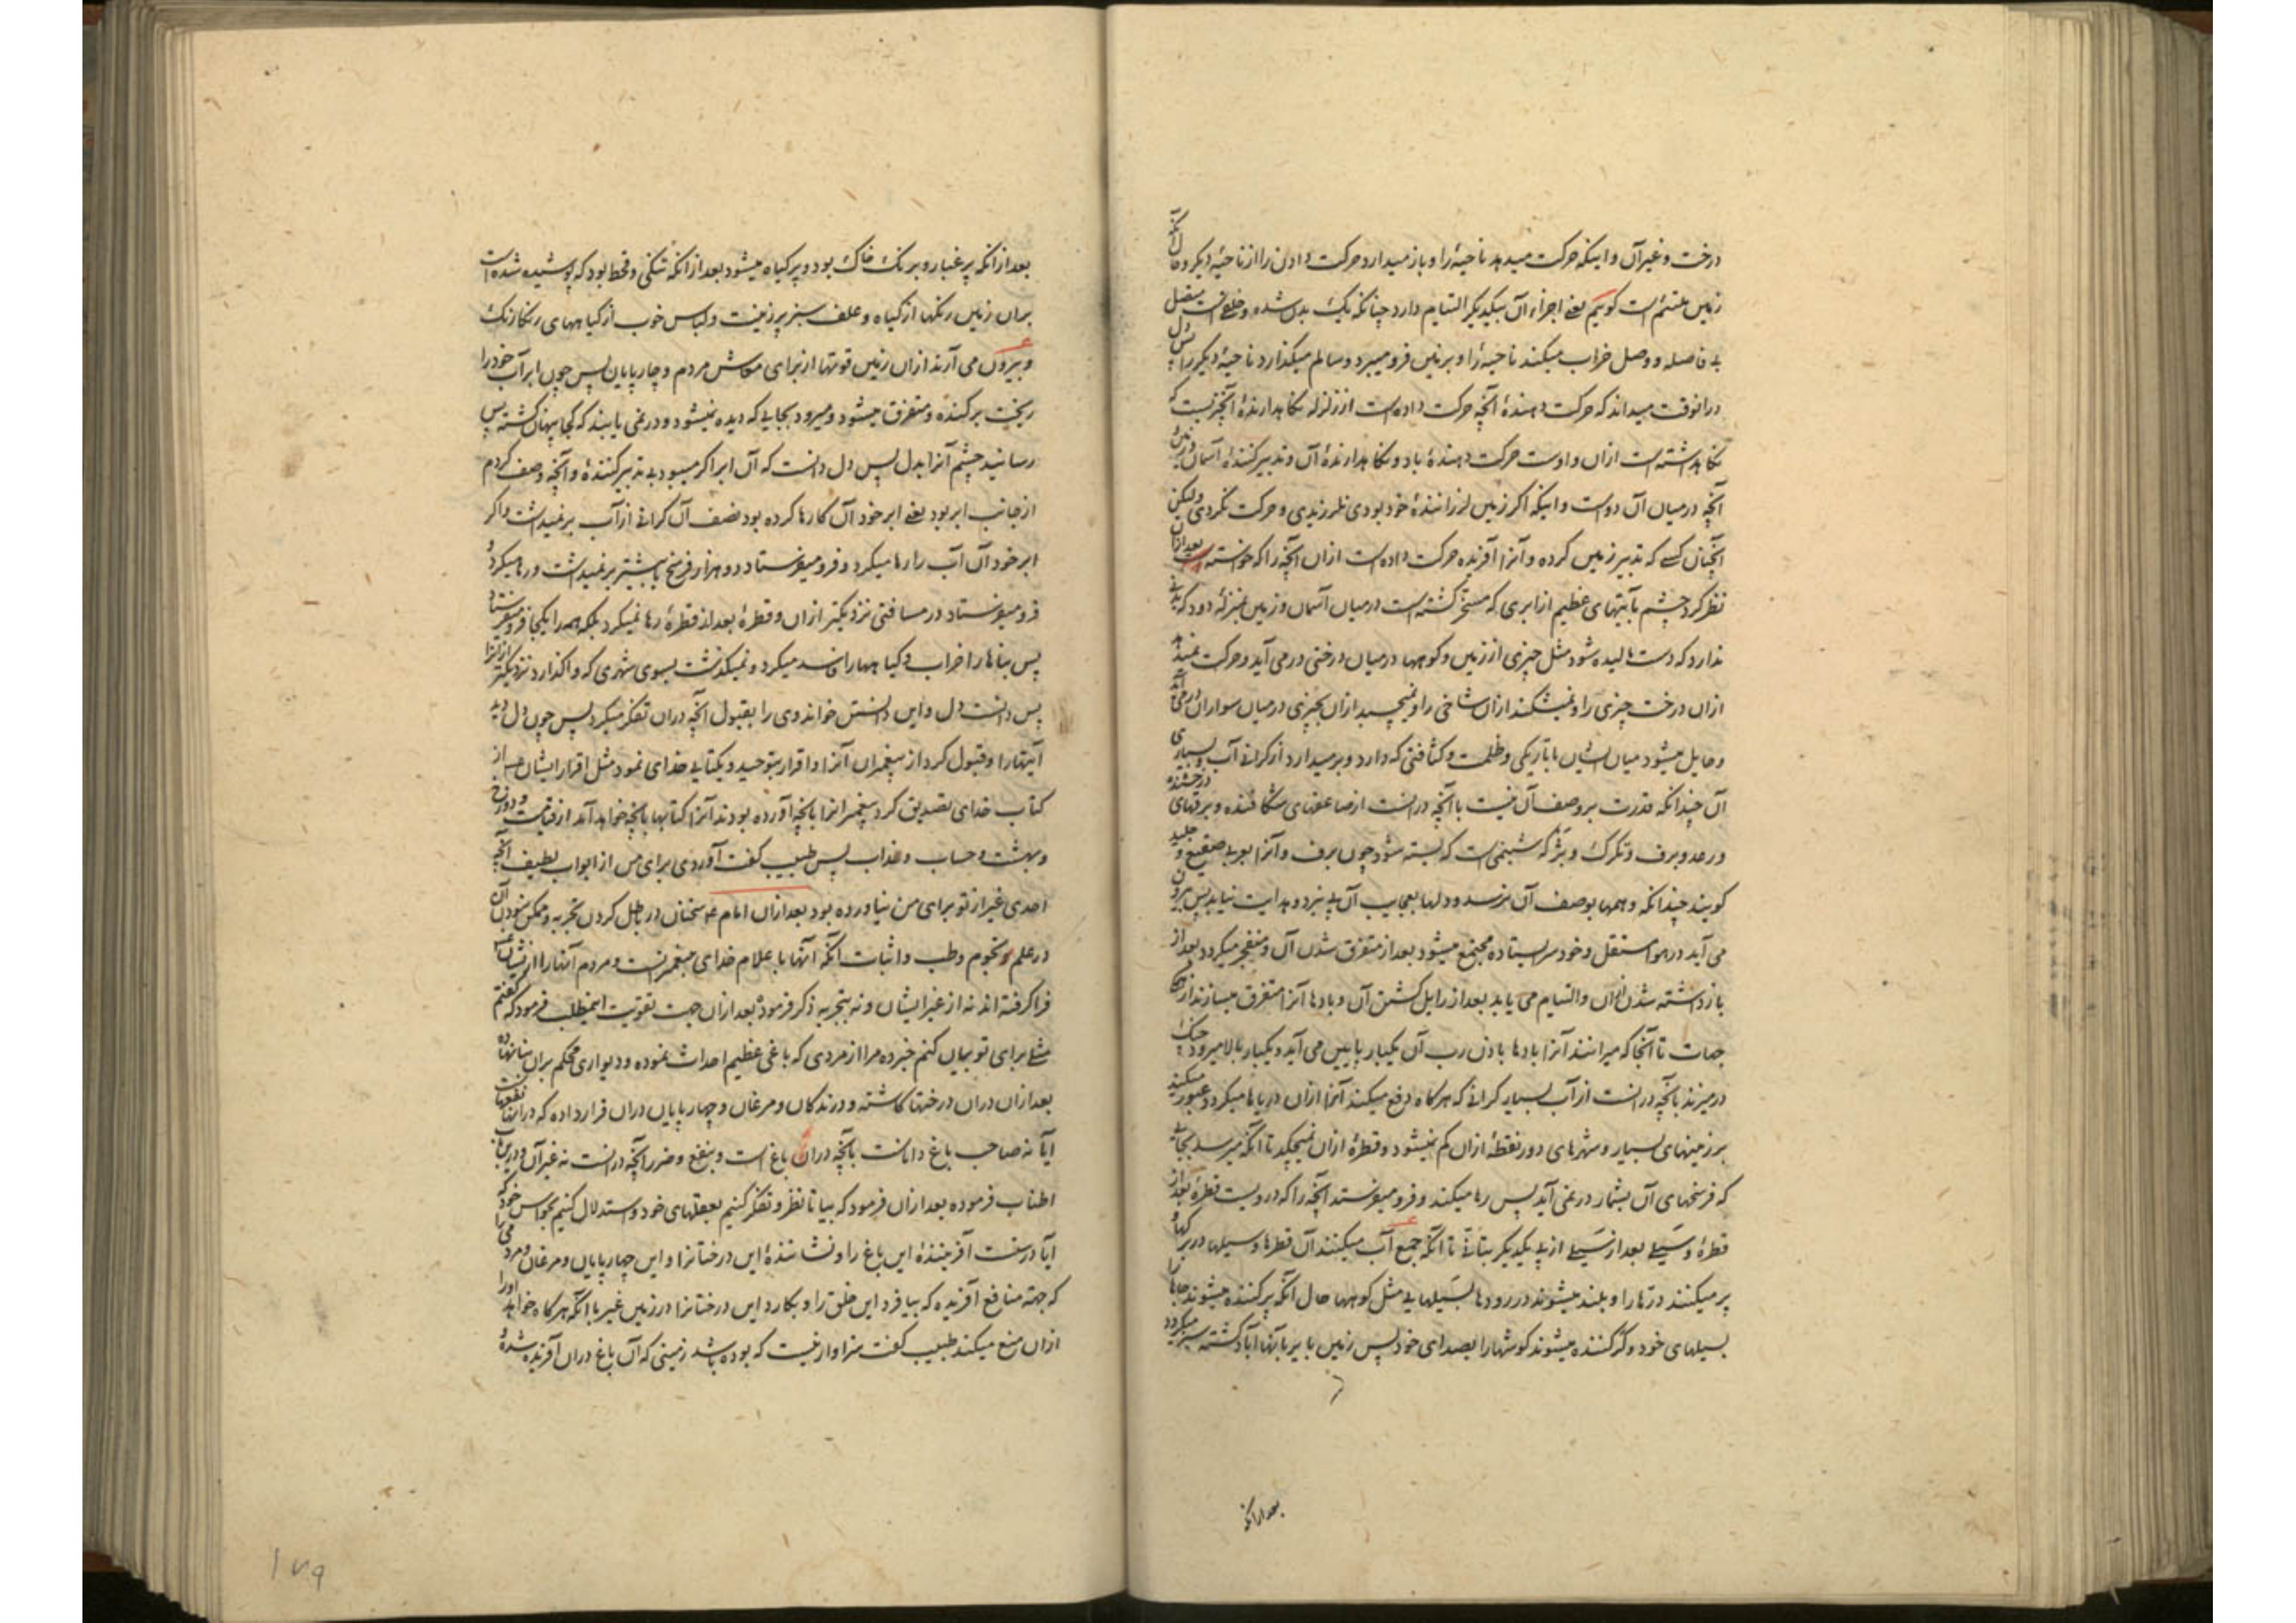 درخت و غیر آن و اینکه حرکت میدهد ناحیهٔ را و باز میدارد حرکت دادن را از ناحیهٔ دیگر و حال آنکه
زمین ملتئم است گوییم یعنی اجزاء آن بیکدیگر التیام دارد چنانکه یک بدن شده و خلقی است متصل
بی فاصله و وصل خراب میکند ناحیهٔ را و بر زمین فرو میبرد و سالم میگذارد ناحیهٔ دیگر را پس دل
درانوقت میداند که حرکت دهندهٔ آنچه حرکت داده است از زلزله نگاهدارندهٔ آنچیزیست که
نگاهداشته است ازان و اوست حرکت دهندهٔ باد و نگاهدارندهٔ آن و تدبیر کنندهٔ آسمان و زمین و
آنچه درمیان آن دو است و اینکه اگر زمین لرزانندهٔ خود بودی نلرزیدی و حرکت نکردی ولیکن
آنچنان کسی که تدبیر زمین کرده و آنرا آفریده حرکت داده است ازان آنچه را که خواسته است بعد ازان
نظر کرد چشم بآیتهای عظیم از ابری که مسخر گشته است درمیان آسمان و زمین بمنزلهٔ دود که بدنی
ندارد که دست مالیده شود مثل چیزی از زمین و کوهها درمیان درختی در می آید و حرکت نمیدهد
ازان درخت چیزی را و نمیشکند ازان شاخی را و نمیچسبد ازان بچیزی درمیان سواران در می آید
و حایل میشود میان ایشان با تاریکی و ظلمت و کثافتی که دارد و برمیدارد از گرانی آب و بسیاری
آن چندانکه قدرت بر وصف آن نیست با آنچه درانست از صاعقهای شکافنده و برقهای درخشنده
و رعد و برف و تگرگ و بژ که شبنمی است که بسته شود چون برف و آنرا بعربی صقیع و جلید
گویند چندانکه وهمها بوصف آن نرسد و دلها بعجایب آن پی نبرد و هدایت نیابد پس بیرون
می آید در هوا مستقل و خود سر ایستاده مجتمع میشود بعد از متفرق شدن آن و منفجر میگردد بعد از
باز داشته شدن آن و التیام می یابد بعد از زایل گشتن آن و بادها آنرا متفرق میسازند از همه
جهات تا آنجا که میرانند آنرا بادها باذن رب آن یکبار پایین می آید و یکبار بالا میرود چنگ
در میزند بآنچه درانست از آب بسیار گرانی که هرگاه دفع میکند آنرا ازان دریاها میگردد و عبور میکند
بر زمینهای بسیار و شهرهای دور نقطهٔ ازان کم نمیشود و قطرهٔ ازان نمیچکد تا آنکه میرسد بجایی
که فرسخهای آن بشمار در نمی آید پس رها میکند و فرو میفرستد آنچه را که در ویست قطرهٔ بعد از
قطرهٔ و سیلی بعد از سیلی از پی یکدیگر بتأنی تا آنکه جمع آب میکنند آن قطرها و سیلها در برکها و
پر میکنند درّها را و بلند میشوند در رودها بسیلهایی مثل کوهها حال آنکه پر کننده میشوند جاها را
بسیلهای خود و کر کننده میشوند گوشها را بصدای خود پس زمین بایر بآنها آباد گشته سبز میگردد
بعد ازانکه
بعد ازانکه پر غبار و برنگ خاک بود و پر گیاه میشود بعد ازانکه تنگی و قحط بود که پوشیده شده است
بران زمین رنگها از گیاه و علف سبز پر زینت و لباس خوب از گیاههای رنگارنگ
و بیرون می آرند ازان زمین قوتها از برای معاش مردم و چارپایان پس چون ابر آب خود را
ریخت برکنده و متفرق میشود و میرود بجایی که دیده نمیشود و در نمی یابند که کجا پنهان گشته پس
رسانید چشم آنرا بدل پس دل دانست که آن ابر اگر میبود بی تدبیر کنندهٔ و آنچه وصف کردم
از جانب ابر بود یعنی ابر خود آن کارها کرده بود نصف آن گرانی از آب بر نمیداشت و اگر
ابر خود آن آب را رها میکرد و فرو میفرستاد دو هزار فرسخ یا بیشتر بر نمیداشت و رها میکرد و
فرو میفرستاد در مسافتی نزدیکتر ازان و قطرهٔ بعد از قطرهٔ رها نمیکرد بلکه همه را یکجا فرو میفرستاد
پس بناها را خراب و گیاهها را فاسد میکرد و نمیگذشت بسوی شهری که واگذارد نزدیکتر ازانرا
پس دانست دل و این دانستن خواند وی را بقبول آنچه دران تفکر میکرد پس چون دل دید
آیتها را و قبول کرد از پیغمبران آنرا و اقرار بتوحید و یکتایی خدای نمود مثل اقرار ایشان بعد از
کتاب خدای تصدیق کرد پیغمبرانرا بآنچه آورده بودند آنرا کتابها بآنچه خواهد آمد از قیامت و دوزخ
و بهشت و حساب و عذاب پس طبیب گفت آوردی برای من از ابواب لطیف آنچه
احدی غیر از تو برای من نیاورده بود بعد ازان امام ع سخنان در باطل کردن تجربه و ممکن نبودن آن
در علم نجوم و طب و اثبات آنکه آنها باعلام خدای پیغمبرانست و مردم آنها را از ایشان
فرا گرفته اند نه از غیر ایشان و نه بتجربه ذکر فرمود بعد ازان جهت تقویت اینمطلب فرمود که گفتم
مثلی برای تو بیان کنم خبر ده مرا از مردی که باغی عظیم احداث نموده و دیواری محکم بران بنا نهاده
بعد ازان دران درختها کاشته و درندگان و مرغان و چهارپایان دران قرار داده که درانها
آیا نه صاحب باغ داناست بآنچه دران باغ است و بنفع و ضرر آنچه درانست نه غیر آن و درین باب
اطناب فرموده بعد ازان فرمود که بیا تا نظر و تفکر کنیم بعقلهای خود و استدلال کنیم بحواس خود که
آیا درست آفرینندهٔ این باغ را و نشانندهٔ این درختانرا و این چهارپایان و مرغان و مردمی را
که جهته منافع آفریده که بیافرد این خلق را و بکارد این درختانرا در زمین غیر با آنکه هرگاه خواهد او را
ازان منع میکند طبیب گفت سزاوار نیست که بوده باشد زمینی که آن باغ دران آفریده شدهٔ
۱۷۹